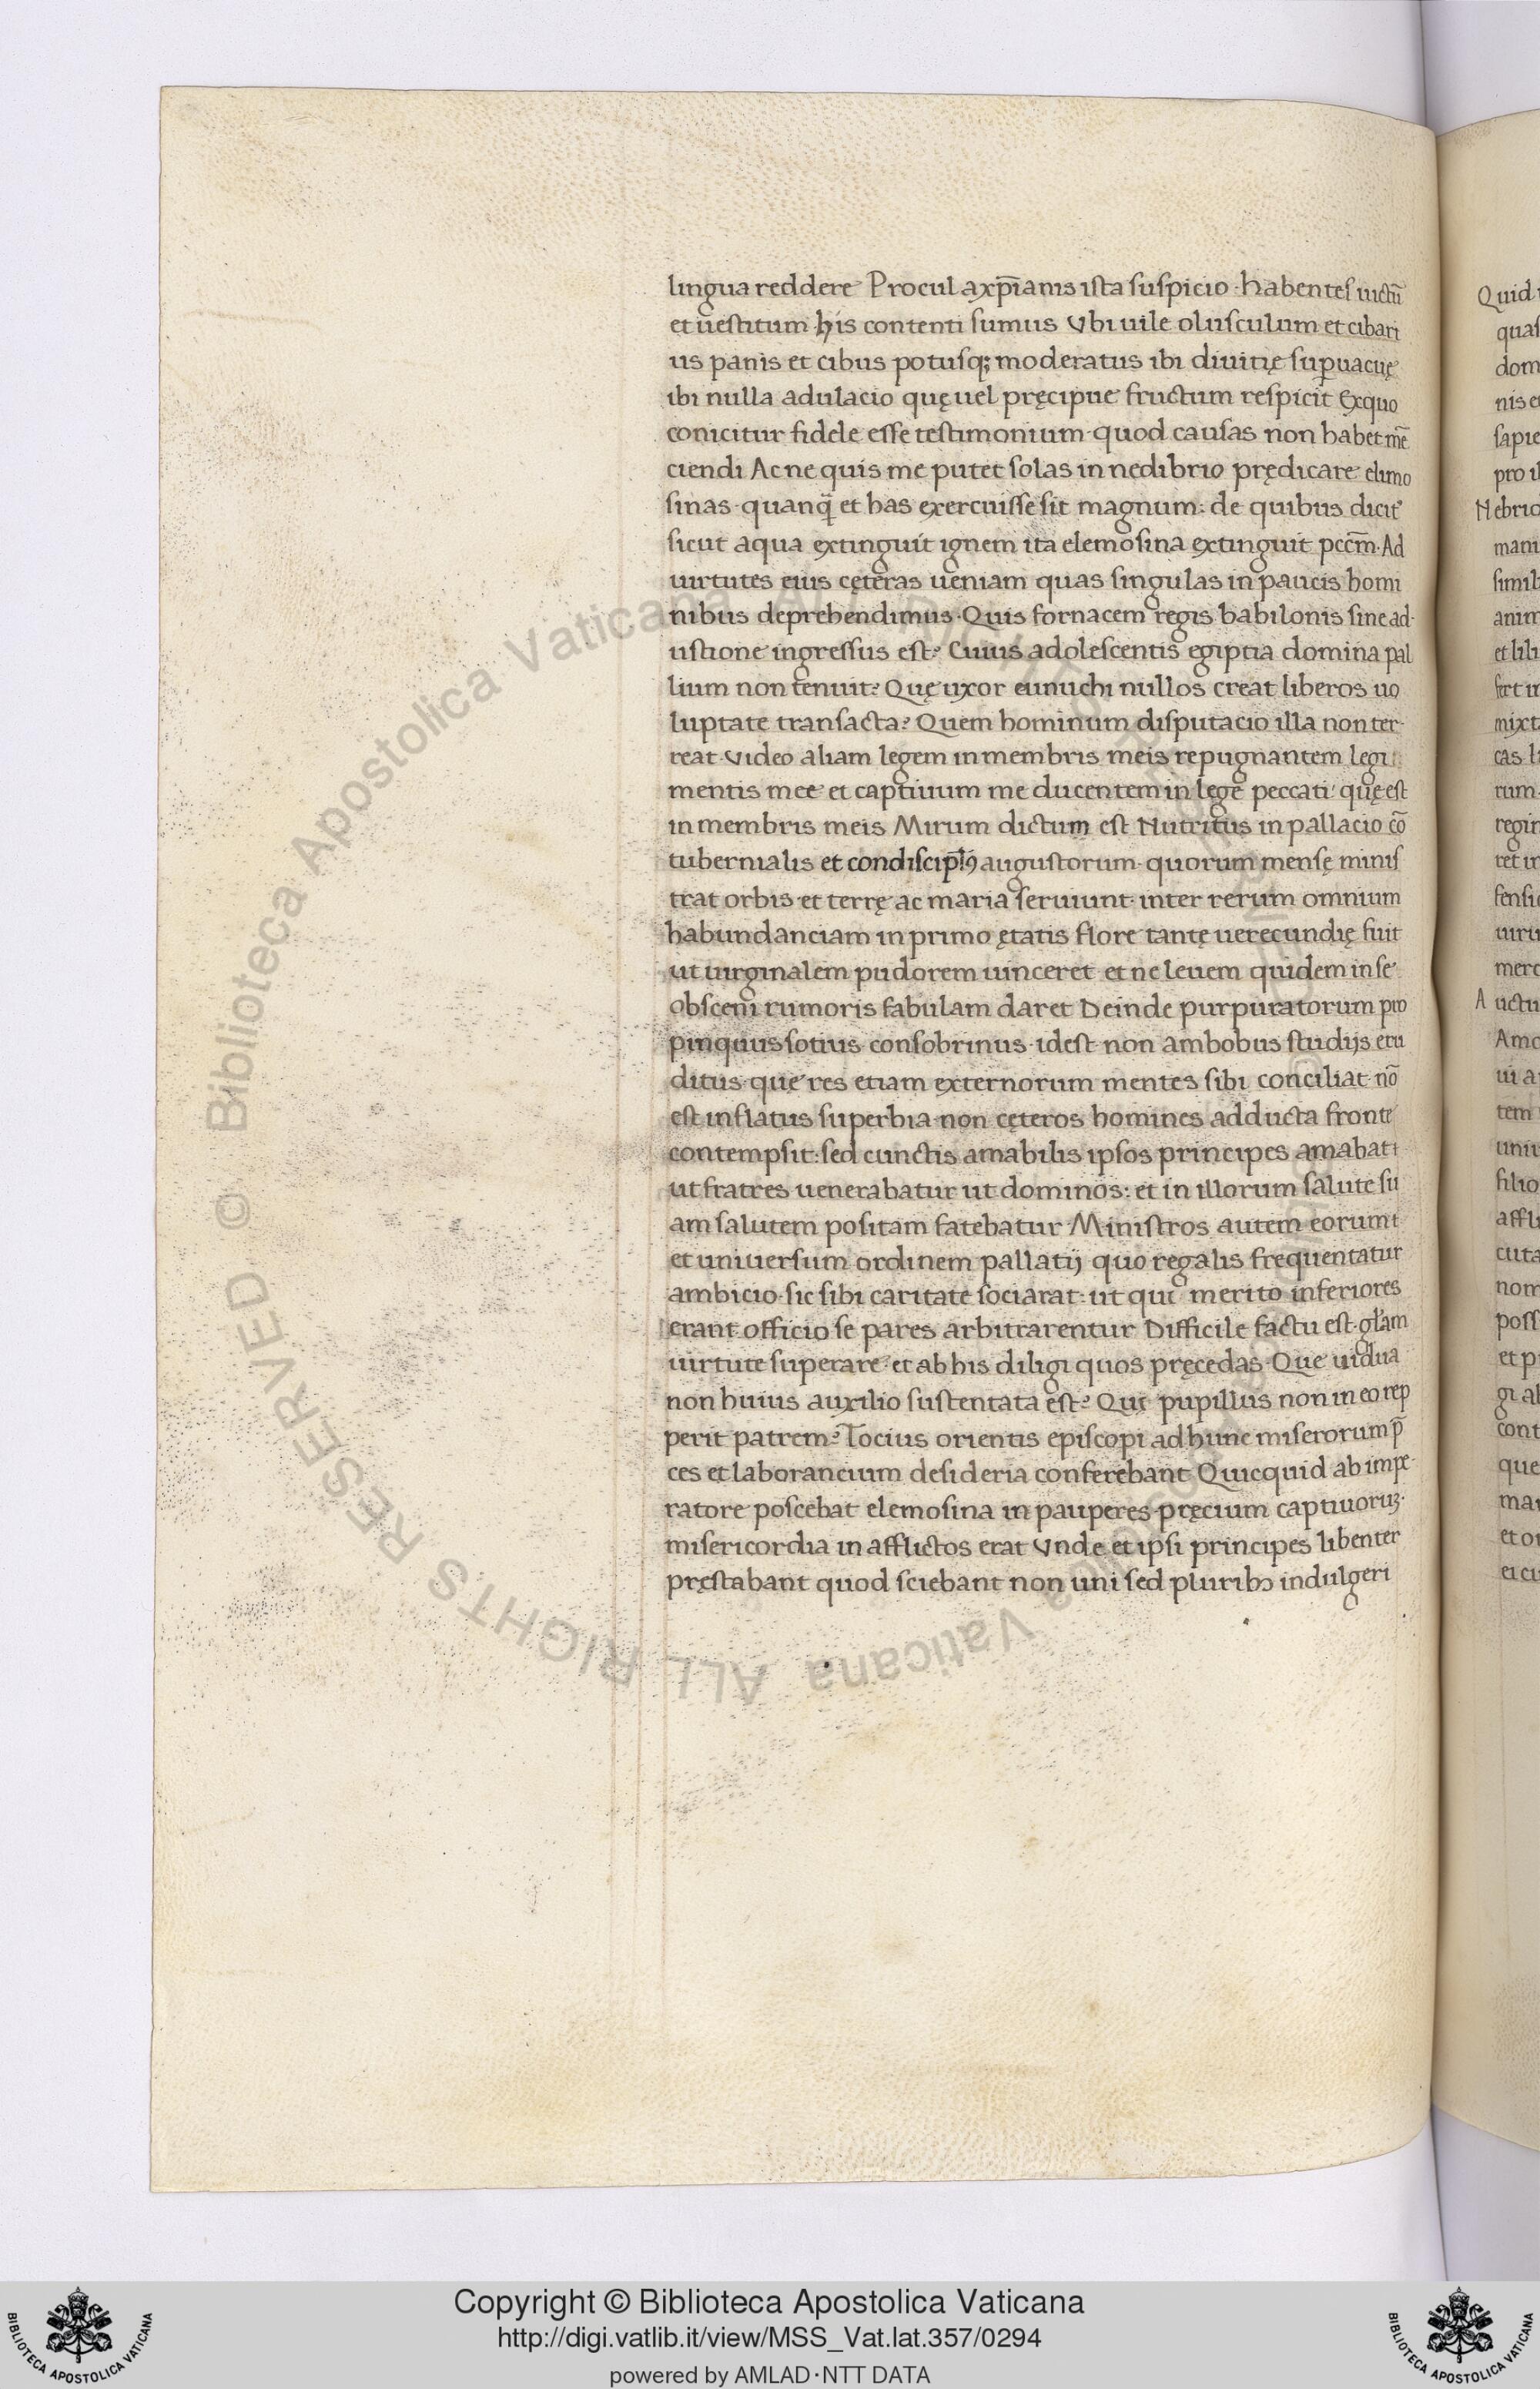 lingua reddere Procul a xp̄ianis ista suspicio · habentes uictū
et uestitum his contenti sumus Vbi uile olusculum et cibari
us panis et cibus potusq; moderatus ibi diuitię sup̱uacuę
ibi nulla adulacio quę uel pręcipue fructum respicit Ex quo
conicitur fidele esse testimonium · quod causas non habet mē
ciendi Ac ne quis me putet solas in nedibrio prędicare elimo
sinas · quanq̄ et has exercuisse sit magnum : de quibus dicit᷑
sicut aqua extinguit ignem ita elemosina extinguit pccm̄ · Ad
uirtutes eius cęteras ueniam quas singulas in paucis homi
nibus deprehendimus · Quis fornacem regis babilonis sine ad·
ustione ingressus est? Cuius adolescentis egiptia domina pal
lium non tenuit? Quę uxor eunuchi nullos creat liberos uo
luptate transacta? Quem hominum disputacio illa non ter·
reat · Video aliam legem in membris meis repugnantem legi
mentis mee et captiuum me ducentem in lege peccati quę est
in membris meis Mirum dictum est Nutritus in pallacio cō
tubernialis et condiscip̄lꝰ augustorum · quorum mensę minis
trat orbis et terrę ac maria seruiunt · inter rerum omnium
habundanciam in primo ętatis flore tantę uerecundię fuit
ut uirginalem pudorem uinceret et ne leuem quidem in se
obsceni rumoris fabulam daret Deinde purpuratorum pro
pinquus sotius consobrinus · idest non ambobus studijs eru
ditus · que res etiam externorum mentes sibi conciliat · nō
est inflatus superbia · non cęteros homines adducta fronte
contempsit : sed cunctis amabilis ipsos principes amabat
ut fratres uenerabatur ut dominos : et in illorum salute su
am salutem positam fatebatur · Ministros autem eorum
et uniuersum ordinem pallatij quo regalis frequentatur
ambicio · sic sibi caritate sociarat : ut qui merito inferiores
erant officio se pares arbitrarentur Difficile factu est · gl̄am
uirtute superare · et ab his diligi quos pręcedas · Que uidua
non huius auxilio sustentata est? Qui pupillus non in eo rep
perit patrem? Tocius orientis episcopi ad hunc miserorum p̄
ces et laborancium desideria conferebant Quicquid ab impe·
ratore poscebat elemosina in pauperes · pręcium captiuoruꝫ ·
misericordia in afflictos erat Vnde et ipsi principes libenter
pręstabant quod sciebant non uni sed pluribꝫ indulgeri
© Biblioteca Apostolica Vaticana ALL RIGHTS RESERVED
Copyright © Biblioteca Apostolica Vaticana
http://digi.vatlib.it/view/MSS_Vat.lat.357/0294
powered by AMLAD·NTT DATA
BIBLIOTECA APOSTOLICA VATICANA
BIBLIOTECA APOSTOLICA VATICANA